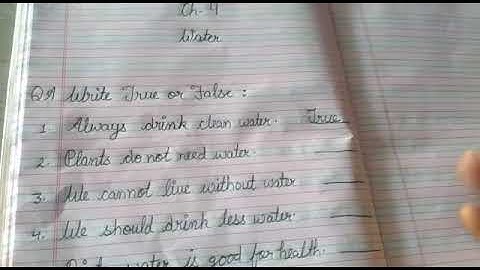 Ch- 4
Water
Q1 Write True or False :
1. Always drink clean water. True
2. Plants do not need water.
3. We cannot live without water
4. We should drink less water.
water is good for health.